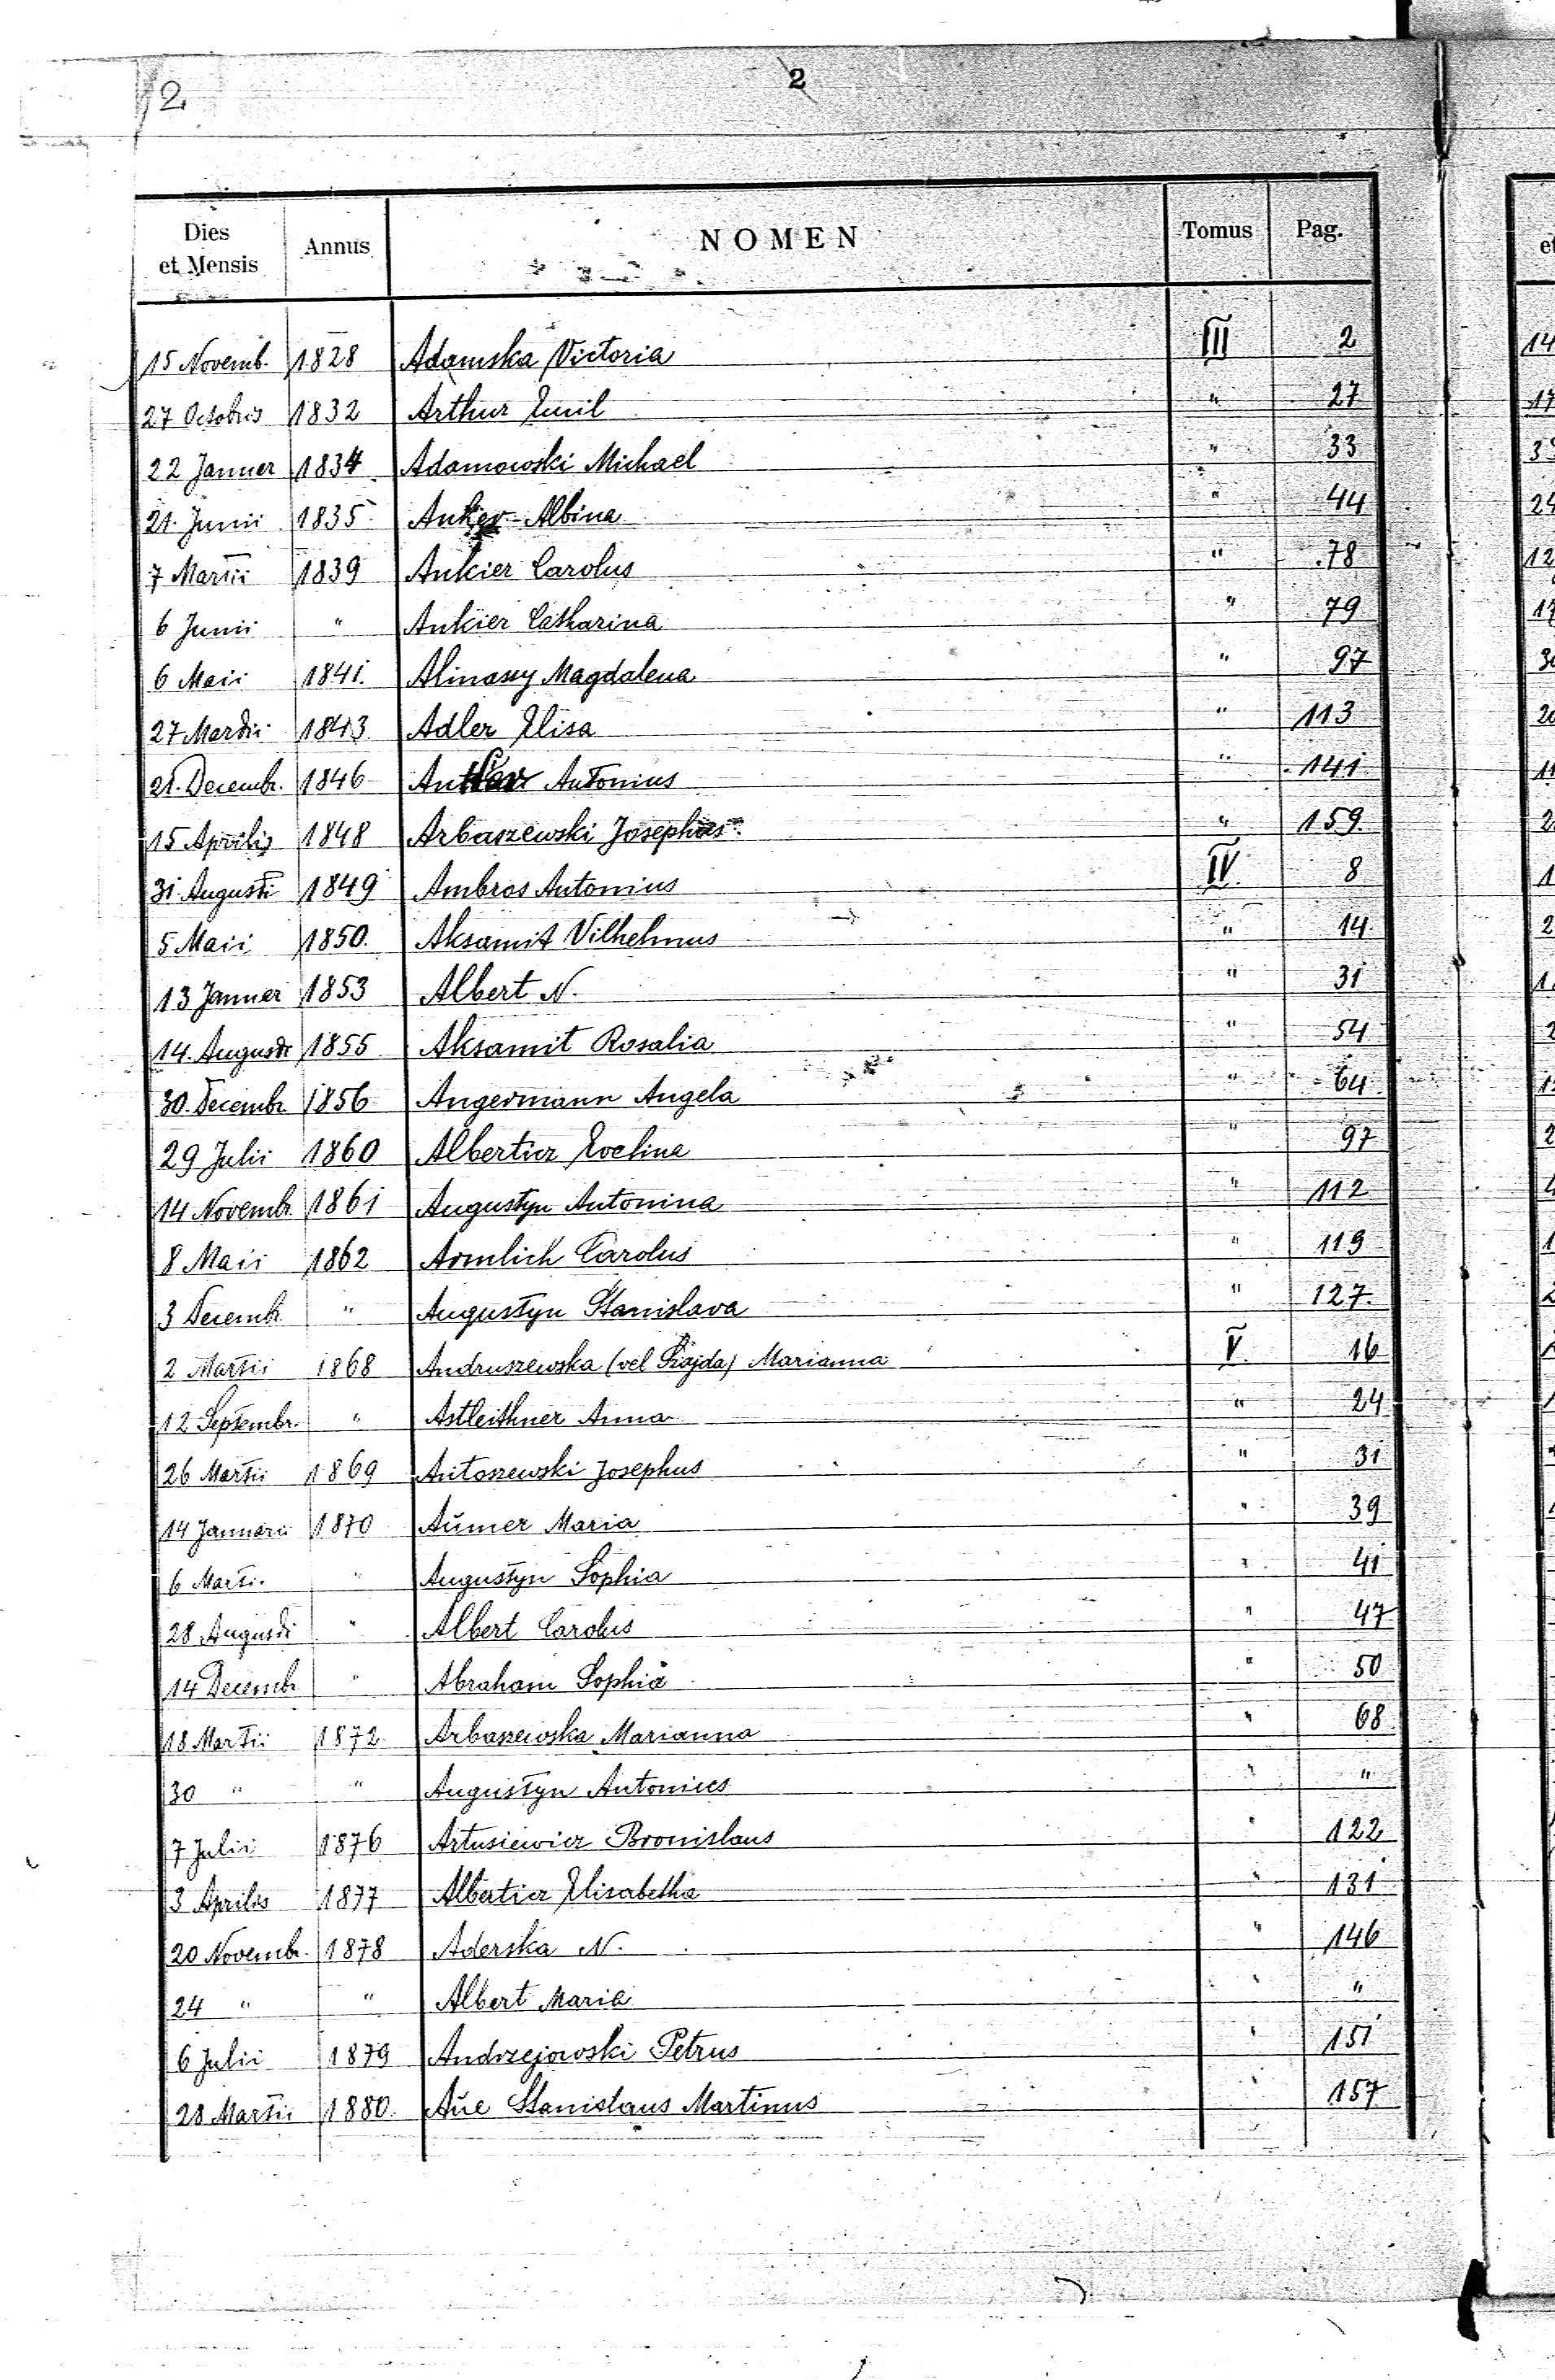 2
2
Dies et Mensis Annus NOMEN Tomus Pag.
15 Novemb. 1828 Adamska Victoria III 2
27 Octobris 1832 Arthur Emil " 27
22 Januer 1834 Adamowski Michael " 33
21. Junii 1835 Anker Albina " 44
7 Martii 1839 Ankier Carolus " 78
6 Junii " Ankier Catharina " 79
6 Maii 1841. Alinasy Magdalena " 97
27 Martii 1843 Adler Elisa " 113
21. Decembr. 1846 Antonius " 141
15 Aprilis 1848 Arbaszewski Josephus " 159
31 Augusti 1849 Ambros Antonius IV 8
5 Maii 1850. Aksamit Vilhelmus " 14
13 Januer 1853 Albert N. " 31
14. Augusti 1855 Aksamit Rosalia " 54
30. Decembr. 1856 Angermann Angela " 64
29 Julii 1860 Albertier Evelina " 97
14 Novembr. 1861 Augustyn Antonina " 112
8 Maii 1862 Armlich Carolus " 119
3 Decembr. " Augustyn Stanislava " 127
2 Martii 1868 Andruszewska (vel ) Marianna V 16
12 Septembr. " Astleithner Anna " 24
26 Martii 1869 Antoszewski Josephus " 31
14 Januarii 1870 Aŭmer Maria " 39
6 Marti. " Augustyn Sophia " 41
28 Augusti " Albert Carolus " 47
14 Decembr " Abraham Sophia " 50
18 Martii 1872 Arbaszewska Marianna " 68
30 " " Augustyn Antonius " "
7 Julii 1876 Artusiewicz Bronislaus " 122
3 Aprilis 1877 Albertier Elisabetha " 131
20 Novembr. 1878 Aderska N. " 146
24 " " Albert Maria " "
6 Julii 1879 Andrzejowski Petrus " 151
28 Martii 1880. Aŭe Stanislaus Martinus " 157